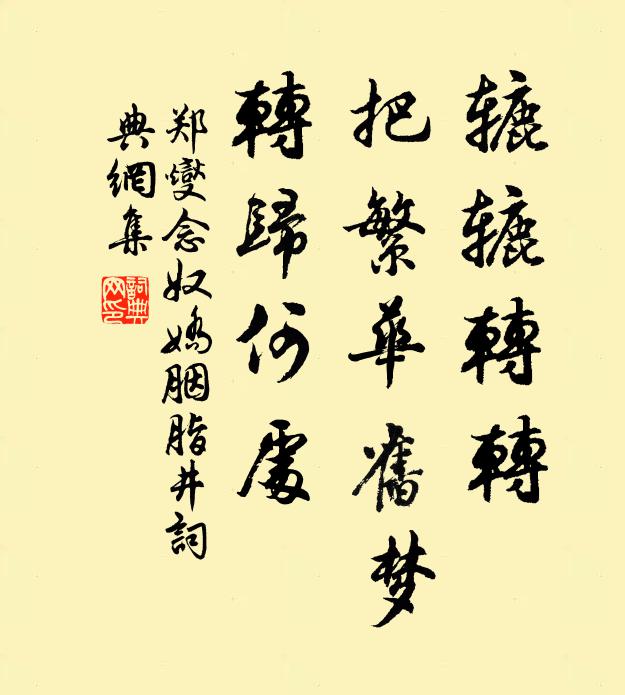 辘辘轉轉
把繁華舊梦
轉歸何處
郑燮念奴嬌胭脂井詞
典網集
詞典網印